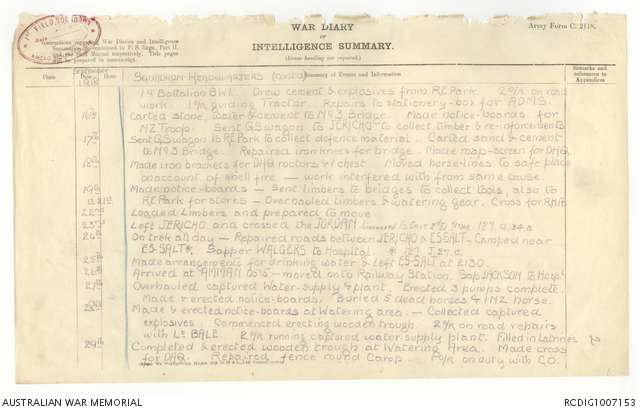 WAR DIARY
Army Form C. 2118.
INTELLIGENCE SUMMARY.
(Erase heading not required).
Instructions regarding War Diaries and Intelligence
Summaries are contained in F. S. Regs., Part II.
and the Staff Manual respectively. Title pages
will be prepared in manuscript.
Place
September
1918
Hour
Squadron Headquarters (contd)
Summary of Events and Information
Remarks and
references to
Appendices
14 Battalion BWI. Drew cement & explosives from RE Park. 2 O/R on road
work. 1 O/R guiding Tractor. Repairs to stationery-box for ADMS.
16th Carted stone, water & cement to No 3 Bridge. Made notice-boards for
NZ Troop. Sent G.S wagon to JERICHO to collect timber & re-inforcements
17th Sent G.S wagon to RE Park to collect defence material. Carted sand & cement
to No 3 Bridge. Repaired iron knees for bridge. Made map-screen for DHQ.
18th Made iron brackets for DHQ motors & 1 chest. Moved horse-lines to safe place
on account of shell fire — work interfered with from same cause.
19th Made notice-boards — Sent limbers to bridges to collect tools, also to
RE Park for stores — Overhauled limbers & watering gear. Cross for RHA
to 21st
22nd Loaded Limbers and prepared to move.
23rd Left JERICHO and crossed the JORDAN
24th On trek all day — Repaired roads between JERICHO & ES-SALT — Camped near
ES-SALT. Sapper WALGERS to Hospital
25th Made arrangements for drinking water & left ES-SALT at 2130.
26th Arrived at AMMAN 0515 — moved on to Railway Station. Sap JACKSON to Hospl
27th Overhauled captured water-supply & plant. Erected 3 pumps complete.
Made & erected notice-boards. Buried 5 dead horses & 1 NZ horse.
28th Made & erected notice-boards at Watering area. — Collected captured
explosives. Commenced erecting wooden trough. 2 O/R on road repairs
with Lt BALE. 2 O/R running captured water supply plant. Filled in Latrines
29th Completed & erected wooden trough at Watering Area. Made cross
for DHQ. Repaired fence round Camp. O/R on duty with C.O.
AUSTRALIAN WAR MEMORIAL
RCDIG1007153